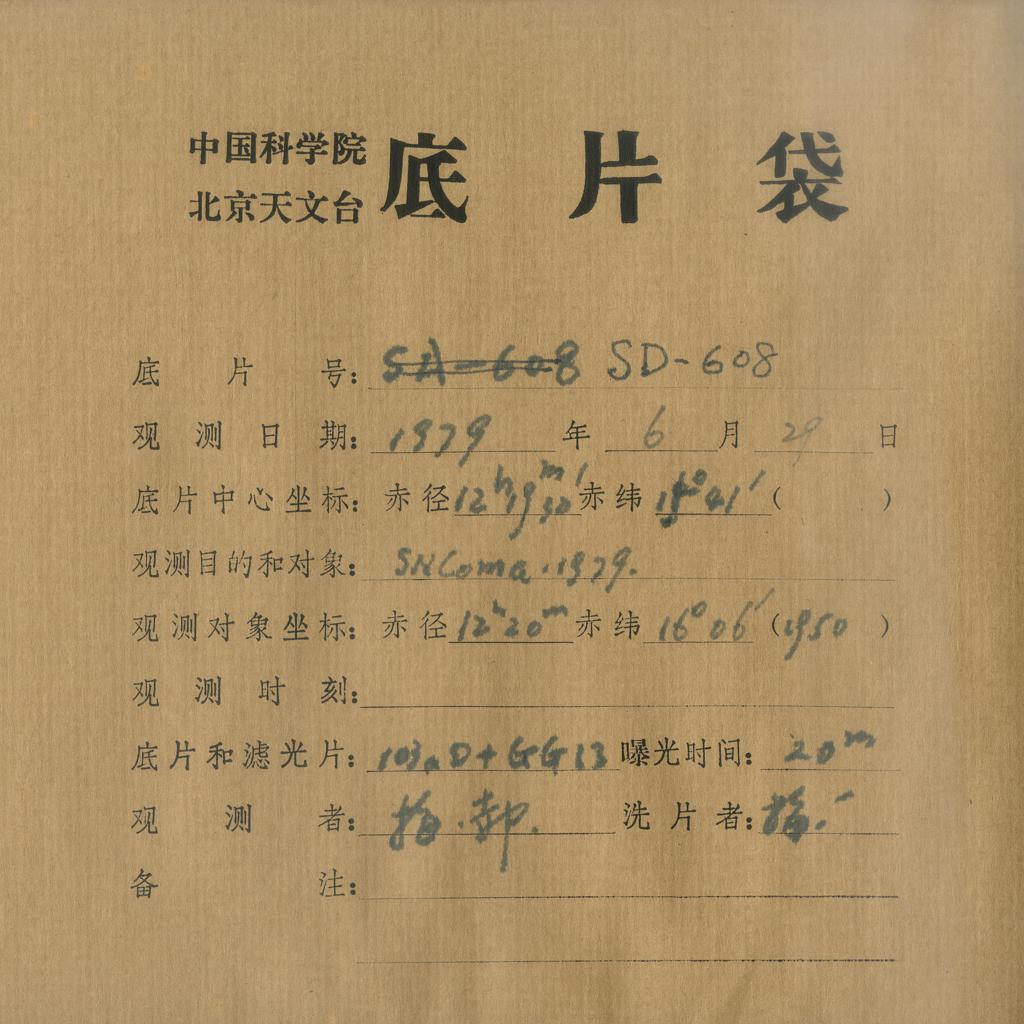 中国科学院
北京天文台
底片袋
底片号：SA-608 SD-608
观测日期：1979年6月29日
底片中心坐标：赤径12h19m30' 赤纬 41'( )
观测目的和对象：SNComa.1979.
观测对象坐标：赤径12h20m赤纬16°06'(1950)
观测时刻：
底片和滤光片：103aD+GG13 曝光时间：20m
观测者：
洗片者：
备注：